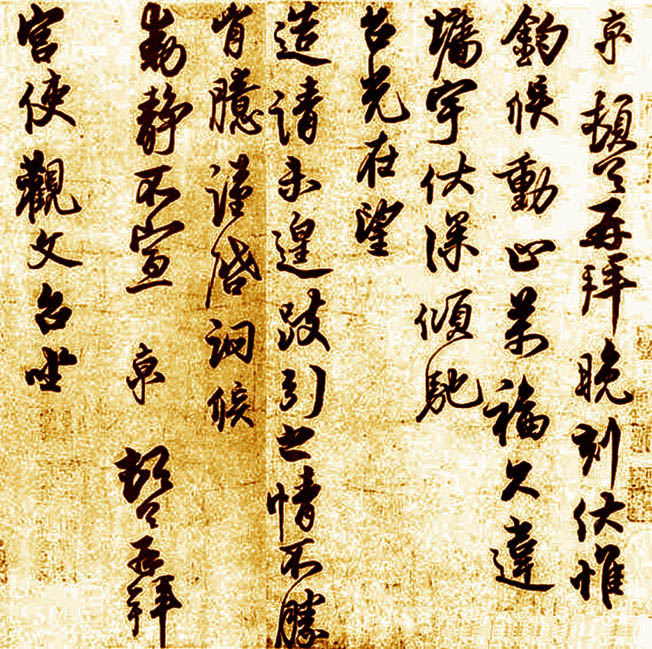 京 頓首再拜晚刻伏惟
鈞候動止萬福久違
墻宇伏深傾馳
台光在望
造請未遑跂引之情不勝
胷臆謹啓詢候
動靜不宣 京 頓首再拜
宮使觀文台坐